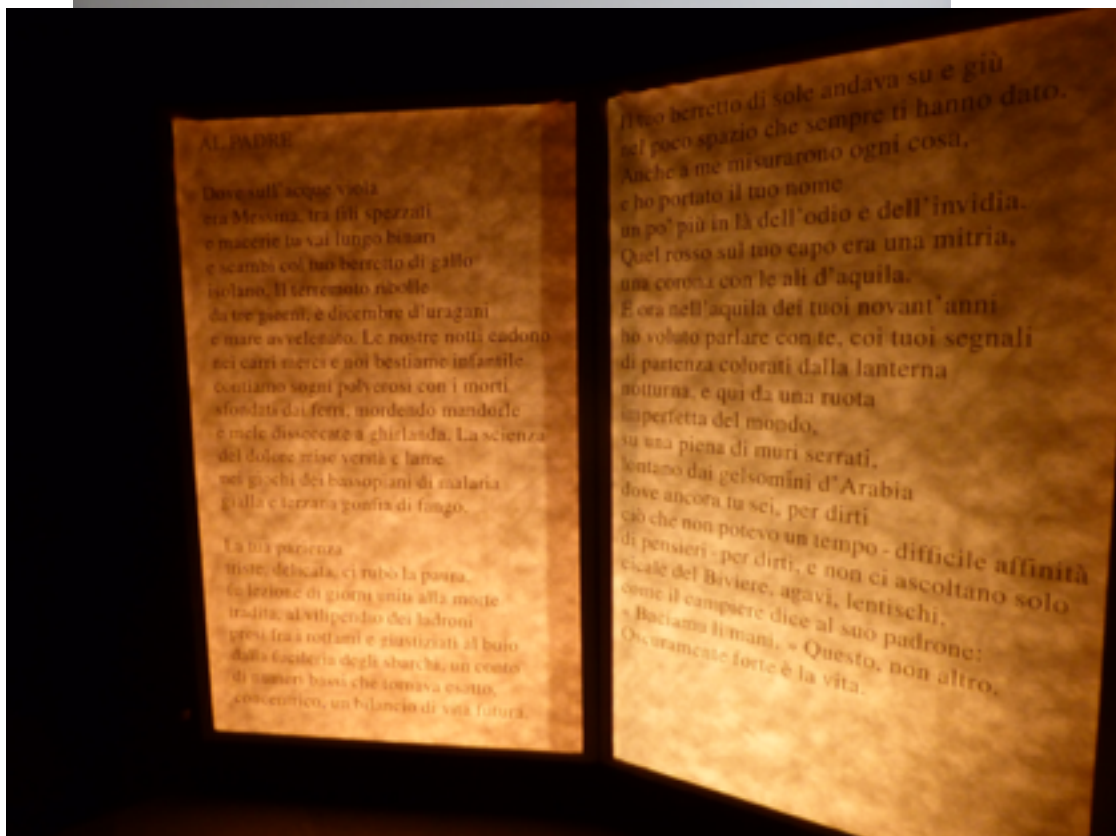 AL PADRE
Dove sull'acque viola
era Messina, tra fili spezzati
e macerie tu vai lungo binari
e scambi col tuo berretto di gallo
isolano. Il terremoto ribolle
da tre giorni, è dicembre d'uragani
e mare avvelenato. Le nostre notti cadono
nei carri merci e noi bestiame infantile
contiamo sogni polverosi con i morti
sfondati dai ferri, mordendo mandorle
e mele dissecate a ghirlanda. La scienza
del dolore mise verità e lame
nei giochi dei bassopiani di malaria
gialla e terzana gonfia di fango.
La tua pazienza
triste, delicata, ci rubò la paura,
fu lezione di giorni uniti alla morte
tradita, al vilipendio dei ladroni
presi fra i rottami e giustiziati al buio
dalla fucileria degli sbarchi, un conto
di numeri bassi che tornava esatto,
concentrico, un bilancio di vita futura.
Il tuo berretto di sole andava su e giù
nel poco spazio che sempre ti hanno dato.
Anche a me misurarono ogni cosa,
e ho portato il tuo nome
un po' più in là dell'odio e dell'invidia.
Quel rosso sul tuo capo era una mitria,
una corona con le ali d'aquila.
E ora nell'aquila dei tuoi novant'anni
ho voluto parlare con te, coi tuoi segnali
di partenza colorati dalla lanterna
notturna, e qui da una ruota
imperfetta del mondo,
su una piena di muri serrati,
lontano dai gelsomini d'Arabia
dove ancora tu sei, per dirti
ciò che non potevo un tempo - difficile affinità
di pensieri - per dirti, e non ci ascoltano solo
cicale del Biviere, agavi, lentischi,
come il campiere dice al suo padrone:
« Baciamu li mani. » Questo, non altro.
Oscuramente forte è la vita.